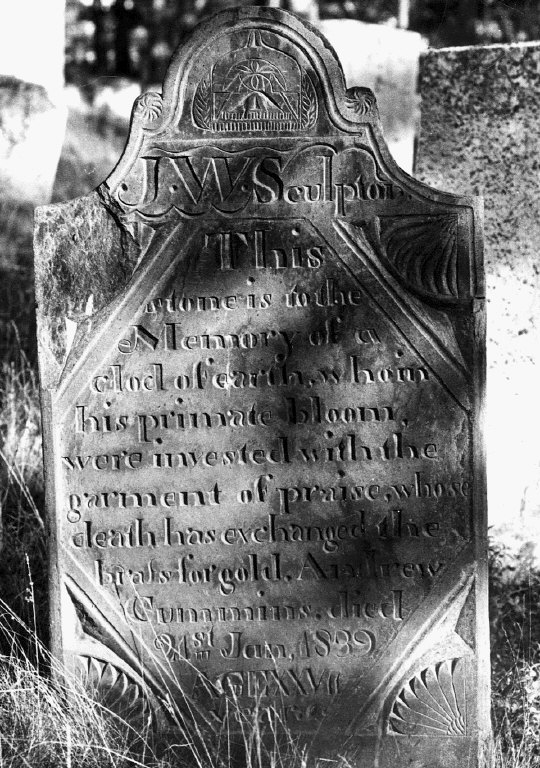 J·W·Sculptor.
This
stone is to the
Memory of a
clod of earth, who in
his primate bloom,
were invested with the
garment of praise, whose
death has exchanged the
brass for gold. Andrew
Cummins. died
21st Jan, 1839,
AGE XXVII
years